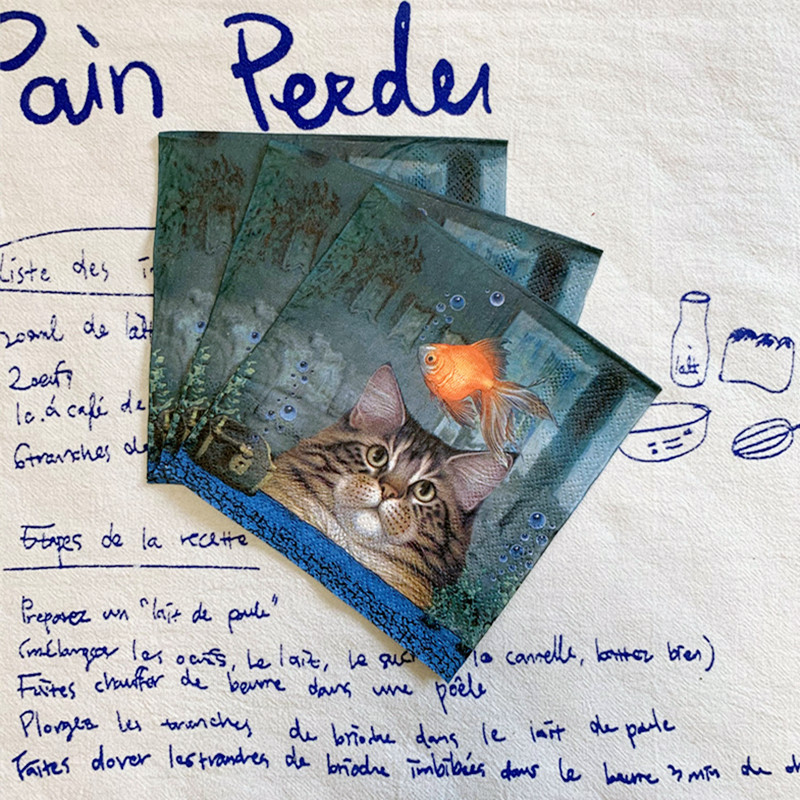 Pain Perdu
Liste des i
200ml de lait
2 oeufs
1c. à café de
6 tranches de
lait
Etapes de la recette
Preparez un "lait de poule"
(mélanger les oeufs, le lait, le suc le cannelle, battez bien)
Faites chauffer de beurre dans une poêle
Plongez les tranches de brioche dans le lait de poule
Faites dorer les tranches de brioche imbibées dans le beurre 3 min de ch